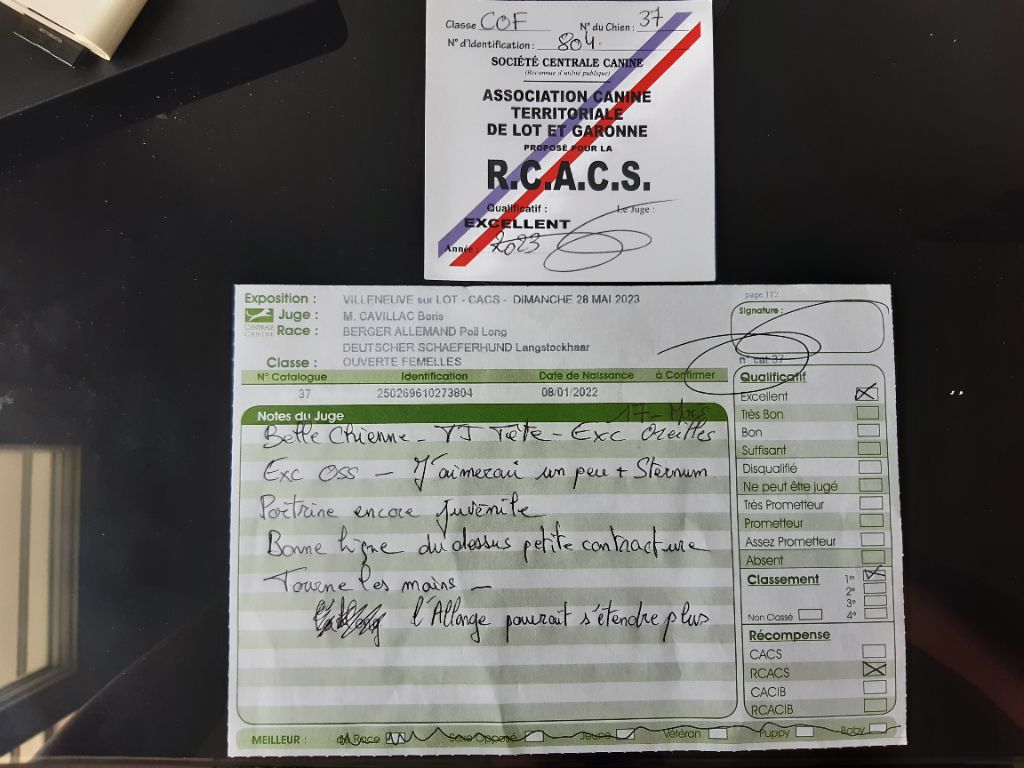 Classe COF N° du Chien : 37
N° d'Identification : 804.
SOCIÉTÉ CENTRALE CANINE
(Reconnue d'utilité publique)
ASSOCIATION CANINE
TERRITORIALE
DE LOT ET GARONNE
PROPOSÉ POUR LA
R.C.A.C.S.
Qualificatif : Le Juge :
EXCELLENT
Année : 2023
Exposition : VILLENEUVE sur LOT - CACS - DIMANCHE 28 MAI 2023
page 112
Juge : M. CAVILLAC Boris
Signature :
CENTRALE CANINE
Race : BERGER ALLEMAND Poil Long
DEUTSCHER SCHAEFERHUND Langstockhaar
Classe : OUVERTE FEMELLES
n° cat 37
N° Catalogue Identification Date de Naissance à Confirmer
37 250269610273804 08/01/2022
Notes du Juge 17 - Mois
Belle Chienne - TJ Tête - Exc Oreilles
Exc Oss - J'aimerai un peu + Sternum
Poitrine encore juvénile
Bonne ligne du dessus petite contracture
Tourne les mains -
l'Allonge pourrait s'étendre plus
Qualificatif
Excellent
Très Bon
Bon
Suffisant
Disqualifié
Ne peut être jugé
Très Prometteur
Prometteur
Assez Prometteur
Absent
Classement 1er
2e
3e
Non Classé 4e
Récompense
CACS
RCACS
CACIB
RCACIB
MEILLEUR : de Race Sexe Opposé Jeune Vétéran Puppy Baby